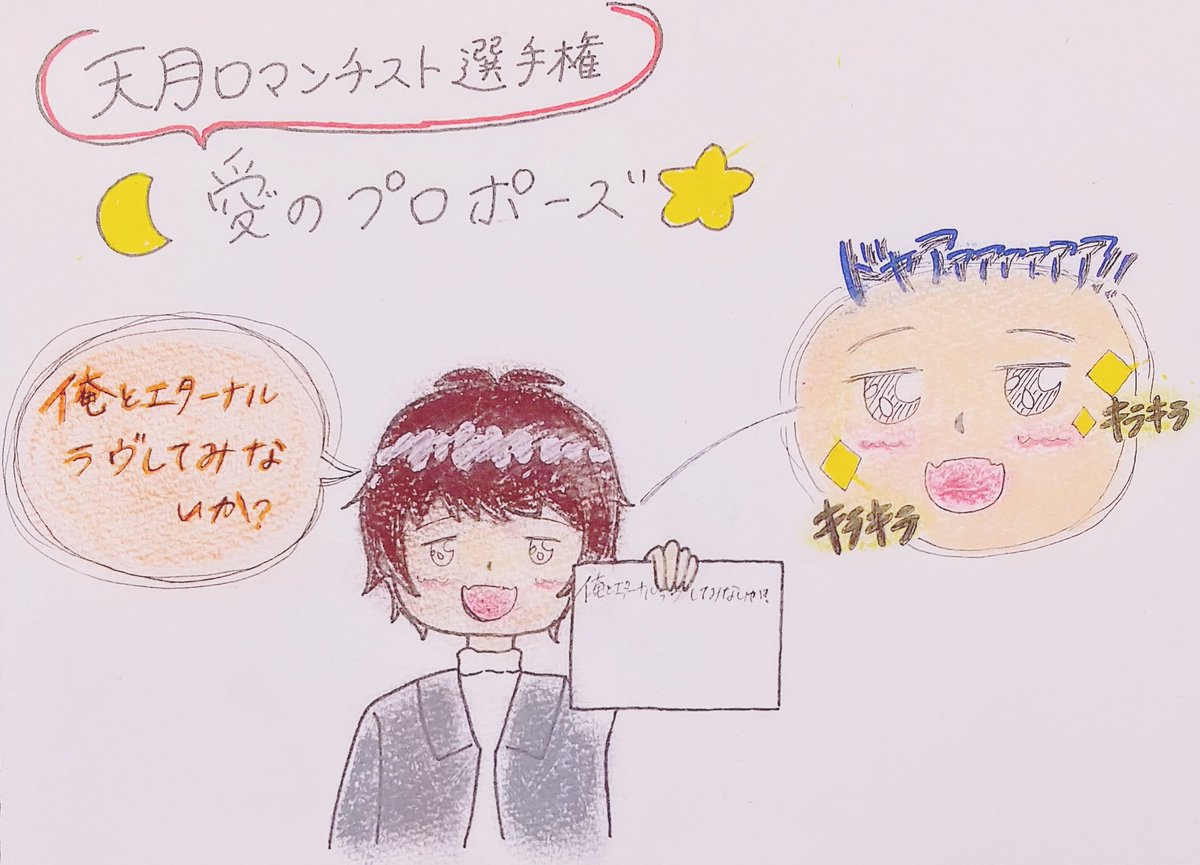 天月ロマンチスト選手権
愛のプロポーズ
俺とエターナル
ラヴしてみな
いか?
ドキァァァァァァァ!!
キラキラ
キラキラ
俺とエターナルラヴしてみないか?